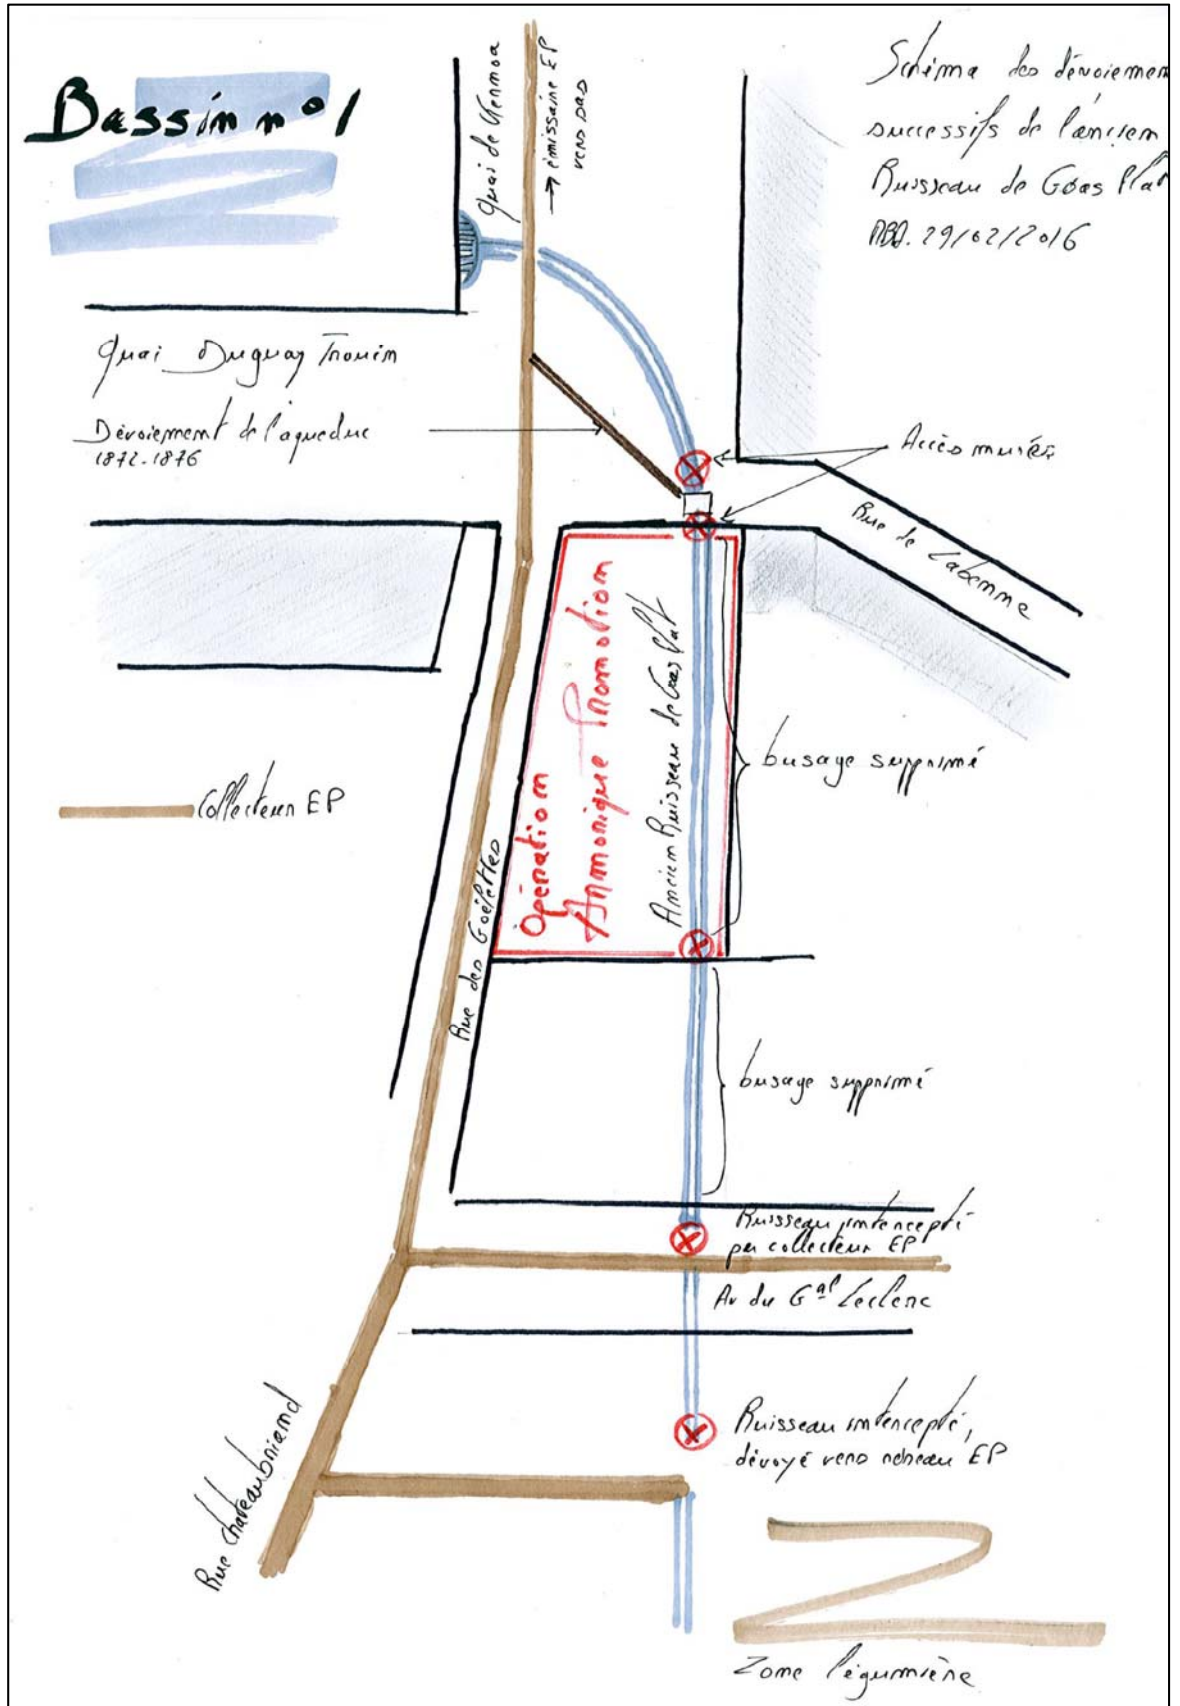 Bassin n°1
Schéma des dévoiemen
successifs de l'ancien
Ruisseau de Goas Plat
29/02/2016
Quai de
→ émissaire EP
vers
Quai Duguay Trouin
Dévoiement de l'aqueduc
1872-1876
Accès murés
Rue de Labenne
Opération
Armorique Promotion
Ancien Ruisseau de Goas Plat
busage supprimé
Collecteur EP
Rue des Goélettes
busage supprimé
Ruisseau intercepté
par collecteur EP
Av du Gal Leclerc
Ruisseau intercepté,
dévoyé vers réseau EP
Rue Chateaubriand
Zone légumière